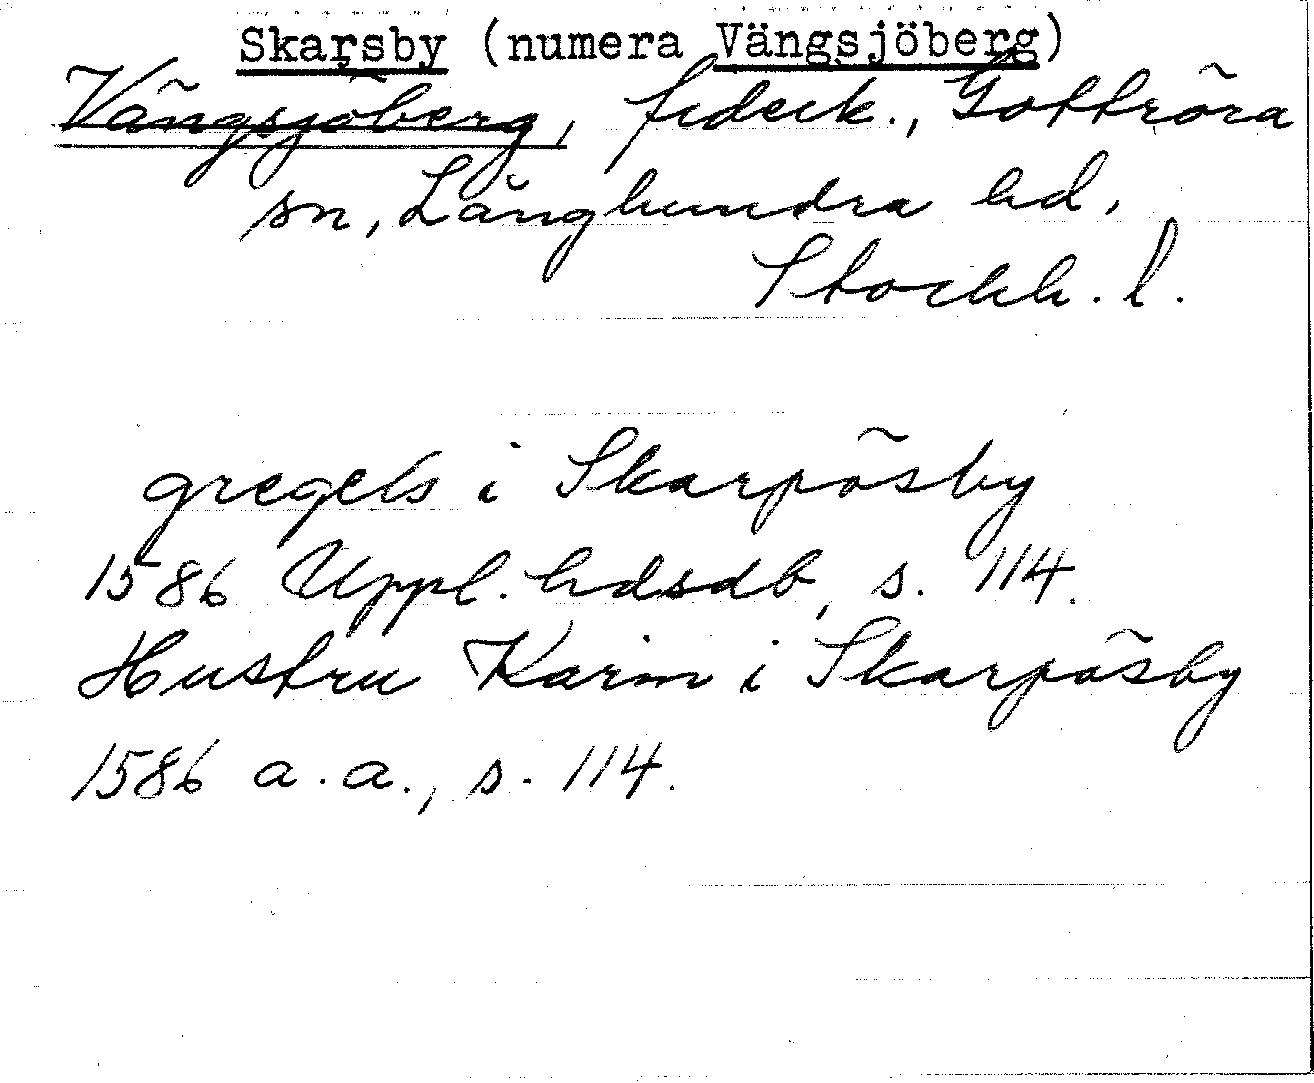 Skarsby (numera Vängsjöberg)
Vängsjöberg, fideik., Gottröra
sn, Långhundra hd,
Stockh. l.
gregels i Skarpösby
1586 Uppl. hdsdb, s. 114.
Hustru Karin i Skarpösby
1586 a.a., s. 114.